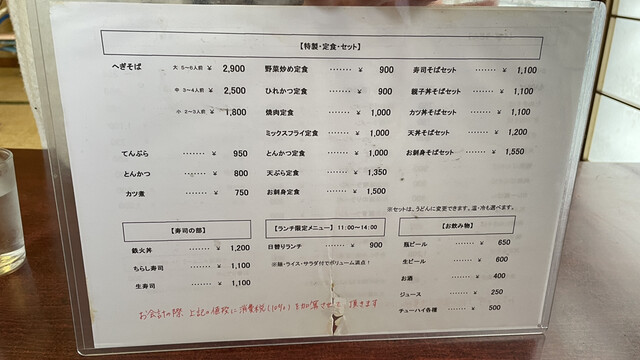 【特製・定食・セット】
へぎそば 大 5～6人前 ¥ 2,900
中 3～4人前 ¥ 2,500
小 2～3人前 ¥ 1,800
てんぷら ¥ 950
とんかつ ¥ 800
カツ煮 ¥ 750
野菜炒め定食 ……… ¥ 900
ひれかつ定食 ……… ¥ 900
焼肉定食 ……… ¥ 1,000
ミックスフライ定食 ……… ¥ 1,000
とんかつ定食 ……… ¥ 1,000
天ぷら定食 ……… ¥ 1,350
お刺身定食 ……… ¥ 1,500
寿司そばセット ……… ¥ 1,100
親子丼そばセット ……… ¥ 1,100
カツ丼そばセット ……… ¥ 1,100
天丼そばセット ……… ¥ 1,200
お刺身そばセット ……… ¥ 1,550
※セットは、うどんに変更できます。温・冷も選べます。
【寿司の部】
鉄火丼 ……… ¥ 1,200
ちらし寿司 ……… ¥ 1,100
生寿司 ……… ¥ 1,100
【ランチ限定メニュー】 11:00～14:00
日替りランチ ……… ¥ 900
※麺・ライス・サラダ付でボリューム満点！
【お飲み物】
瓶ビール ……… ¥ 650
生ビール ……… ¥ 600
お酒 ……… ¥ 400
ジュース ……… ¥ 250
チューハイ各種 ……… ¥ 500
お会計の際、上記の価格に消費税(10%)を加算させて頂きます